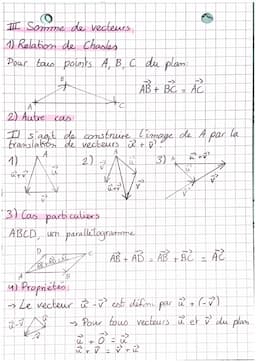 III Somme de vecteurs
1) Relation de Chasles
Pour tous points A, B, C du plan:
B
A C
AB + BC = AC
2) Autre cas
Il s'agit de construire l'image de A par la
translation de vecteurs u + v.
1) 2) 3)
A A A
u+v u v u+v u v
3) Cas particuliers
ABCD, un parallélogramme
D C
A B
AB + AD = AB + BC = AC
4) Propriétés
→ Le vecteur u - v est défini par u + (-v)
u-v
→ Pour tous vecteurs u et v du plan
u + 0 = u
u + v = v + u